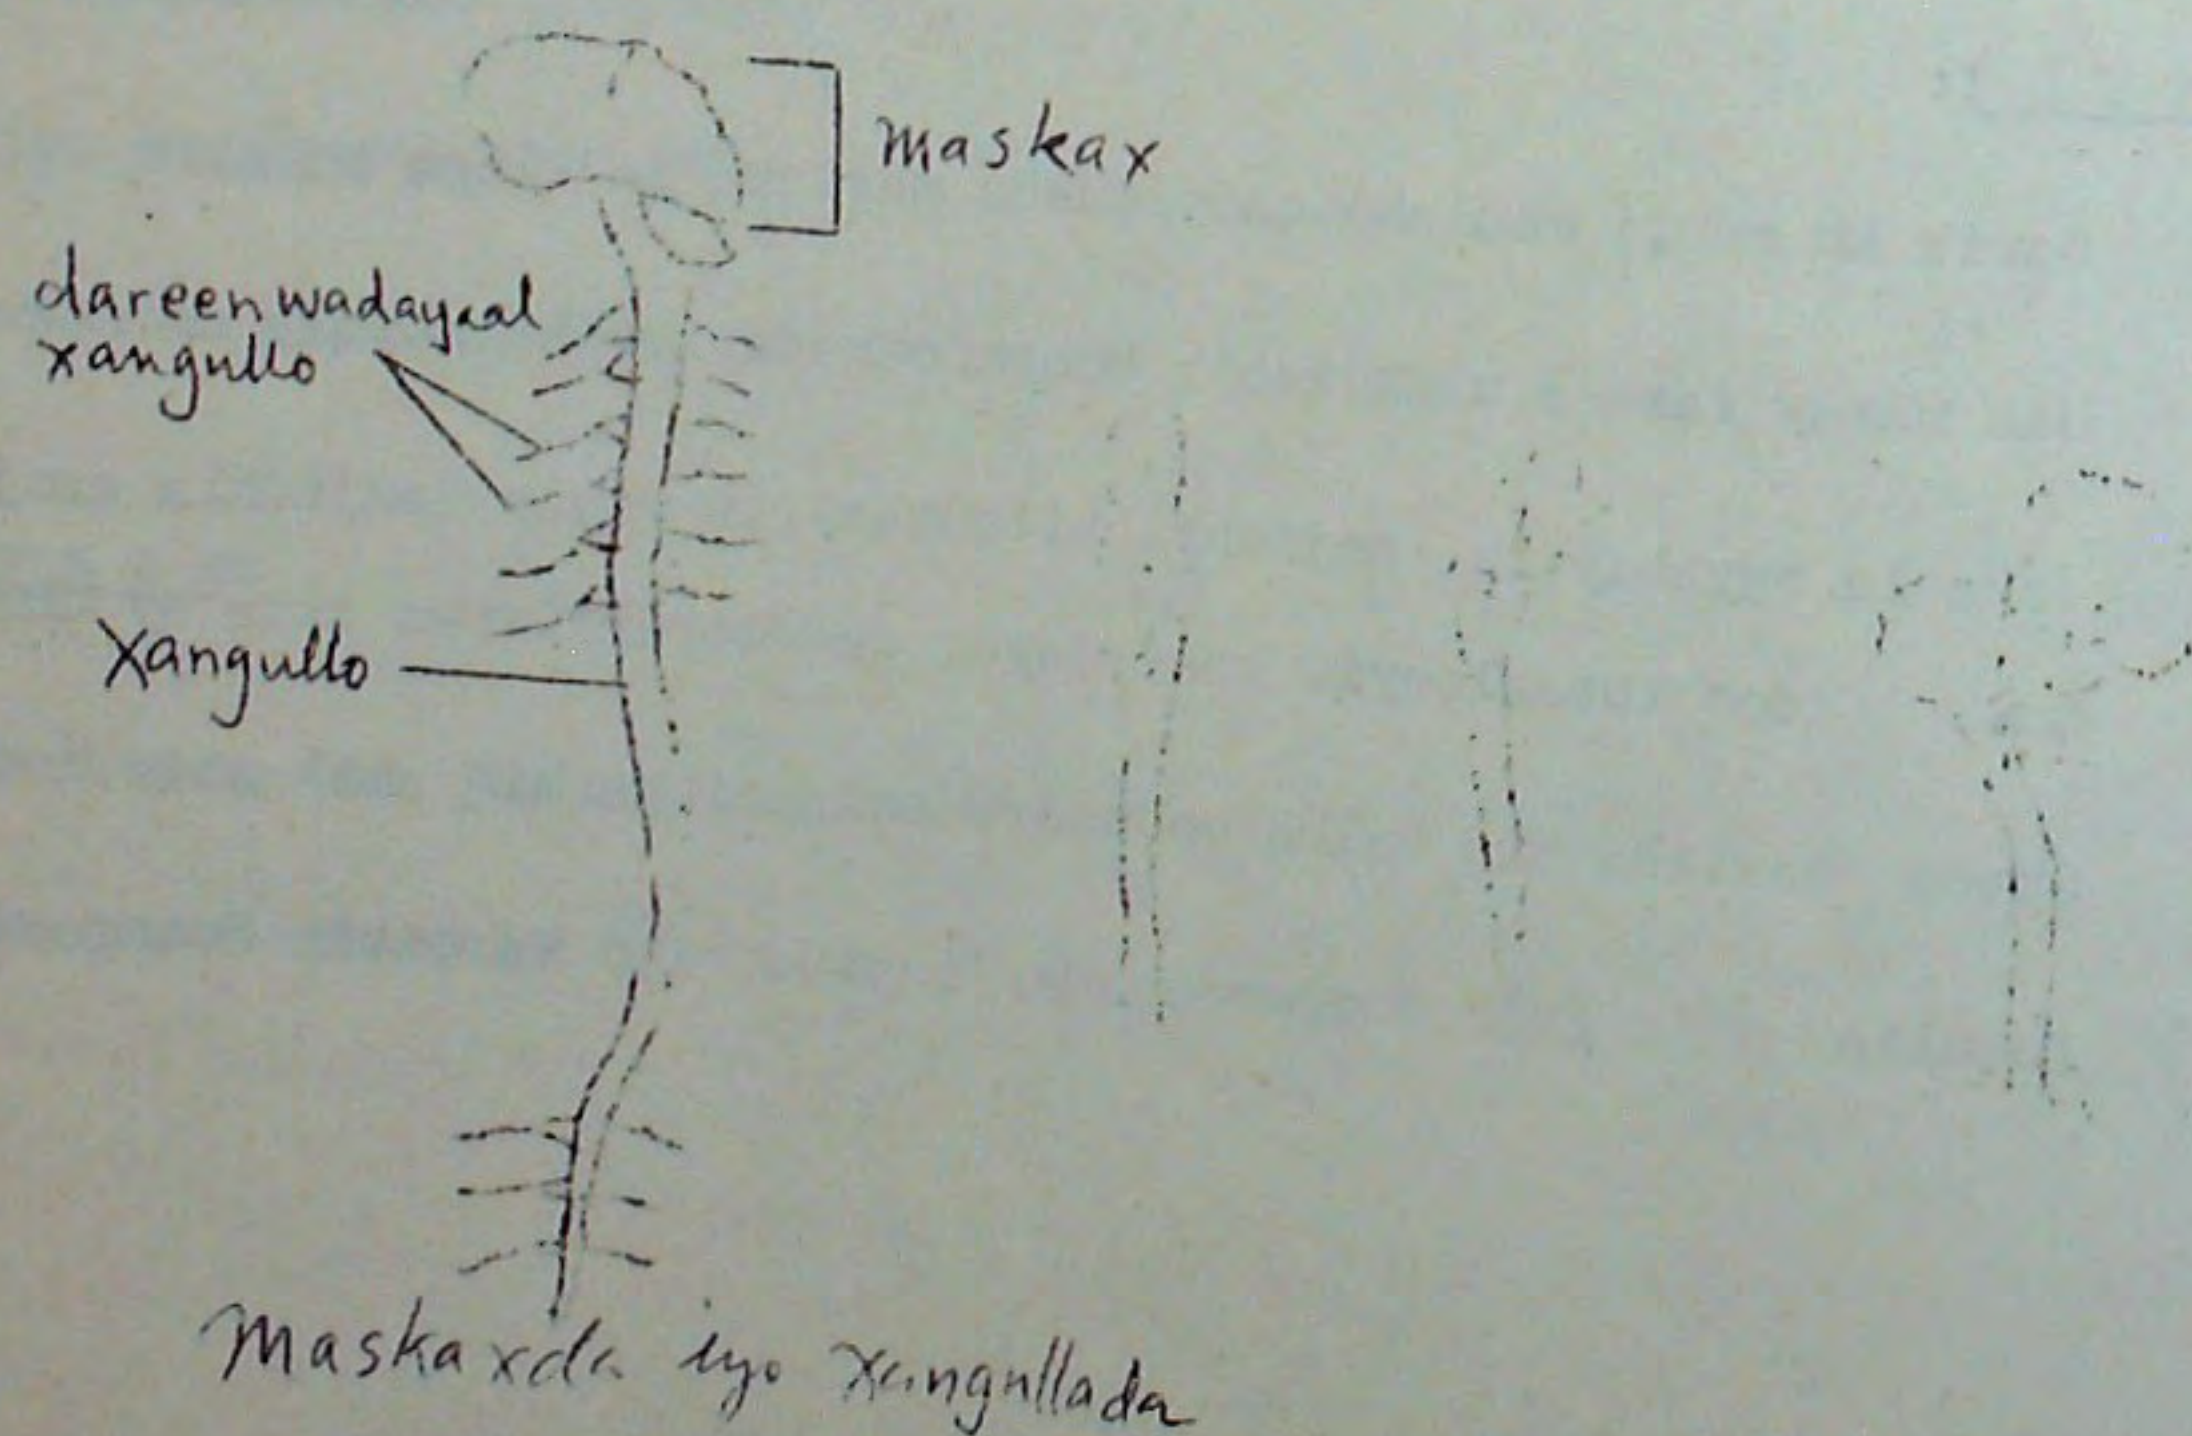 maskax
dareenwadayaal
xangullo
Xangullo
Maskaxda iyo xangullada